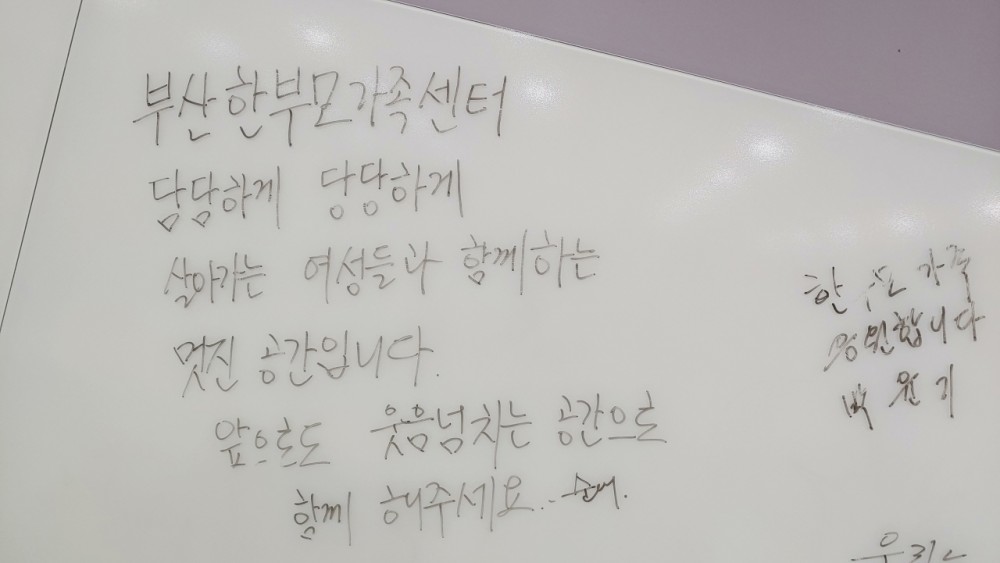 부산한부모가족센터
담담하게 당당하게
살아가는 여성들과 함께하는
멋진 공간입니다.
앞으로도 웃음넘치는 공간으로
함께 해주세요..
한 가족
응원합니다
박원기